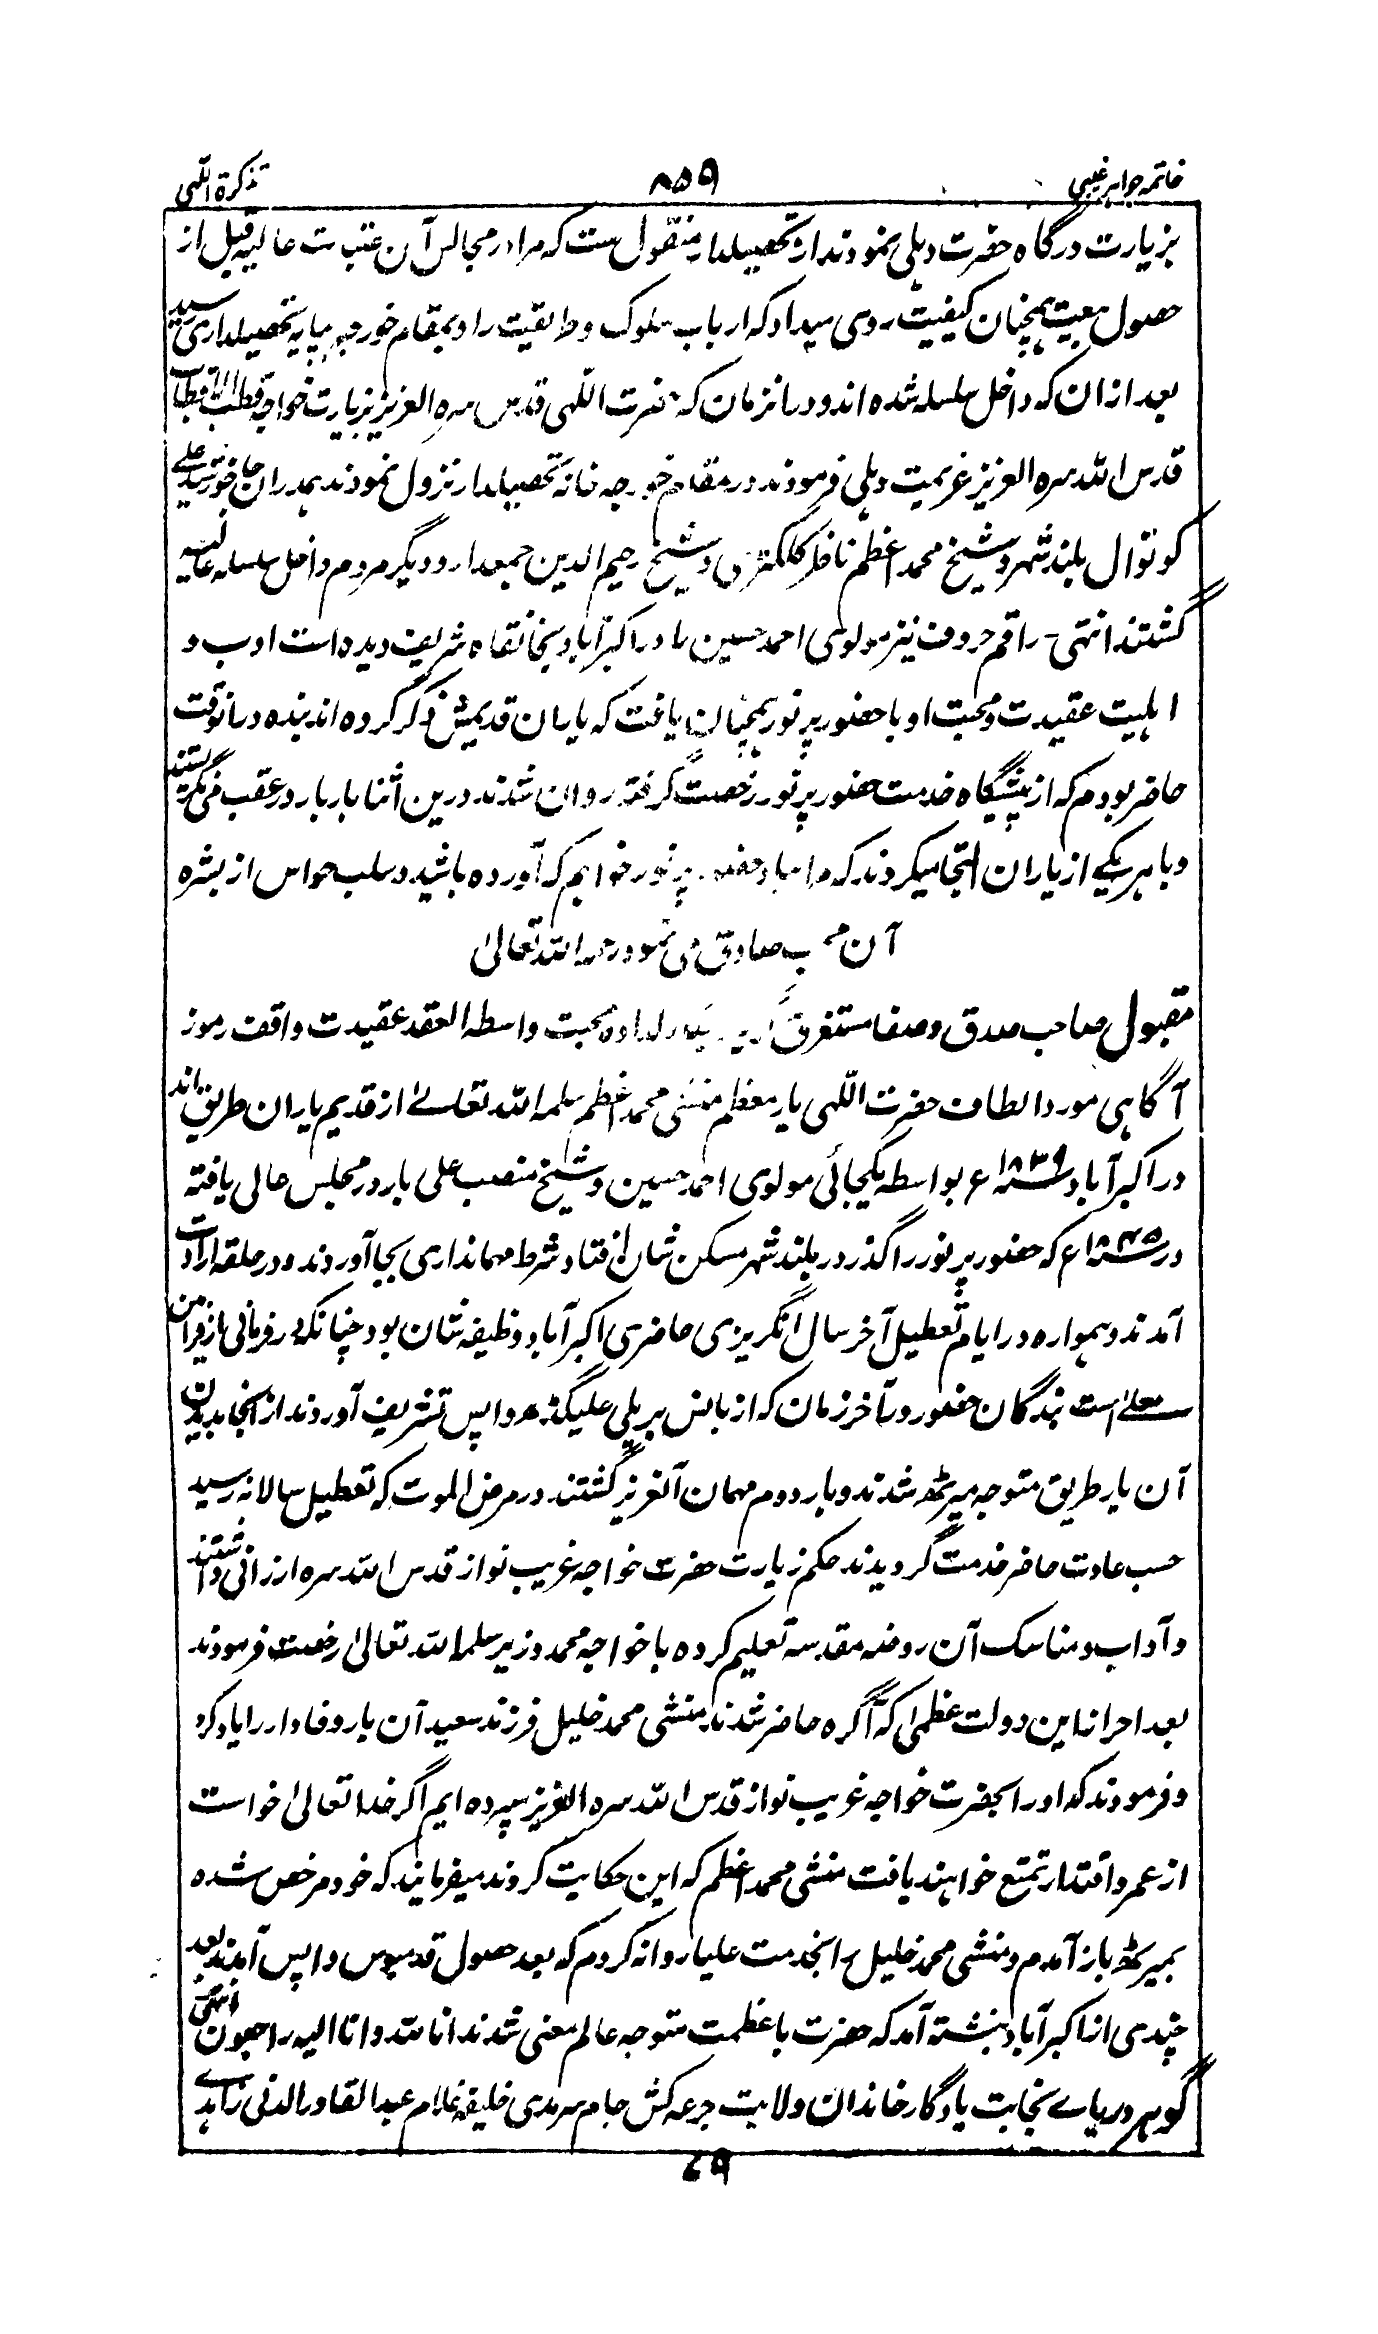 خاتمہ جواہر غیبی
۸۵۹
تذکرۃ اللّٰہی
بزیارت درگاہ حضرت دہلی نمودند از تحصیلدار منقول ست کہ مرا در مجالس آن عتبات عالیہ قبل از
حصول معیت ہمچنان کیفیت روی میداد کہ ارباب سلوک و طریقیت را و بمقام خورجہ بپایہ تحصیلداری رسید
بعد ازان کہ داخل سلسلہ شدہ اند و درانزمان کہ حضرت اللّٰہی قدس سرہ العزیز بزیارت خواجہ قطب الاقطاب
قدس اللہ سرہ العزیز عزیمت دہلی فرمودند در مقام خورجہ خانہ تحصیلدار نزول نمودند ہمدران جا خورشید علے
کوتوال بلند شہر و شیخ محمد اعظم ناظر کلکٹری و شیخ رحیم الدین جمعدار و دیگر مردم داخل سلسلہ عالیہ
گشتند انتہی - راقم حروف نیز مولوی احمد حسین را در اکبرآباد بخانقاہ شریف دیدہ است ادب و
اہلیت عقیدت و محبت او با حضور پر نور ہمچنان یافت کہ یاران قدیمش ذکر کردہ اند بندہ درانوقت
حاضر بودم کہ از پیشگاہ خدمت حضور پر نور رخصت گرفتہ روان شدند درین اثنا بار بار در عقب می نگریستند
و با ہر یکے از یاران التجا میکردند کہ مرا بیاد حضور پر نور خواہم کہ آوردہ باشید و سلب حواس از بشرہ
آن محب صادق می نمود رحمہ اللہ تعالیٰ
مقبول صاحب صدق و صفا مستغرق دلدادہ محبت واسطہ العقد عقیدت واقف رموز
آگاہی مورد الطاف حضرت اللّٰہی یار معظم منشی محمد اعظم سلمہ اللہ تعالےٰ از قدیم یاران طریق اند
در اکبرآباد سنہ ۱۸۳۹ع بواسطہ یکجائی مولوی احمد حسین و شیخ منصب علی بار در مجلس عالی یافتہ
در سنہ ۱۸۴۵ع کہ حضور پر نور را گذر در بلند شہر مسکن شان افتاد شرط مہمانداری بجا آوردند و در حلقہ ارادت
آمدند و ہموارہ در ایام تعطیل آخر سال انگریزی حاضری اکبرآباد وظیفہ شان بود چنانکہ در فرمانی از فرامین
معلےٰ است بندگان حضور در آخر زمان کہ از بانس بریلی علیگڈہ واپس تشریف آوردند از انجا بدیدن
آن یار طریق متوجہ میرٹھ شدند و بار دوم مہمان آنعزیز گشتند در مرض الموت کہ تعطیل سالانہ رسید
حسب عادت حاضر خدمت گردیدند حکم زیارت حضرت خواجہ غریب نواز قدس اللہ سرہ ارزانی داشتند
و آداب و مناسک آن روضہ مقدسہ تعلیم کردہ با خواجہ محمد وزیر سلمہ اللہ تعالیٰ رخصت فرمودند
بعد احراز این دولت عظمیٰ کہ آگرہ حاضر شدند منشی محمد خلیل فرزند سعید آن یار وفادار را یاد کرد
و فرمودند کہ او را بحضرت خواجہ غریب نواز قدس اللہ سرہ العزیز سپردہ ایم اگر خدا تعالیٰ خواست
از عمر و اقتدار تمتع خواہند یافت منشی محمد اعظم کہ این حکایت کردند میفرمایند کہ خود مرخص شدہ
بمیرٹھ باز آمدم و منشی محمد خلیل را بخدمت علیا روانہ کردم کہ بعد حصول قدمبوس واپس آمدند بعد
چندی از اکبرآباد نبشتہ آمد کہ حضرت با عظمت متوجہ عالم معنی شدند انا للہ و انا الیہ راجعون انتہی
گوہر دریاے نجابت یادگار خاندان ولایت جرعہ کش جام سرمدی خلیفہ غلام عبدالقادر المدنی زاہدے
۷۹